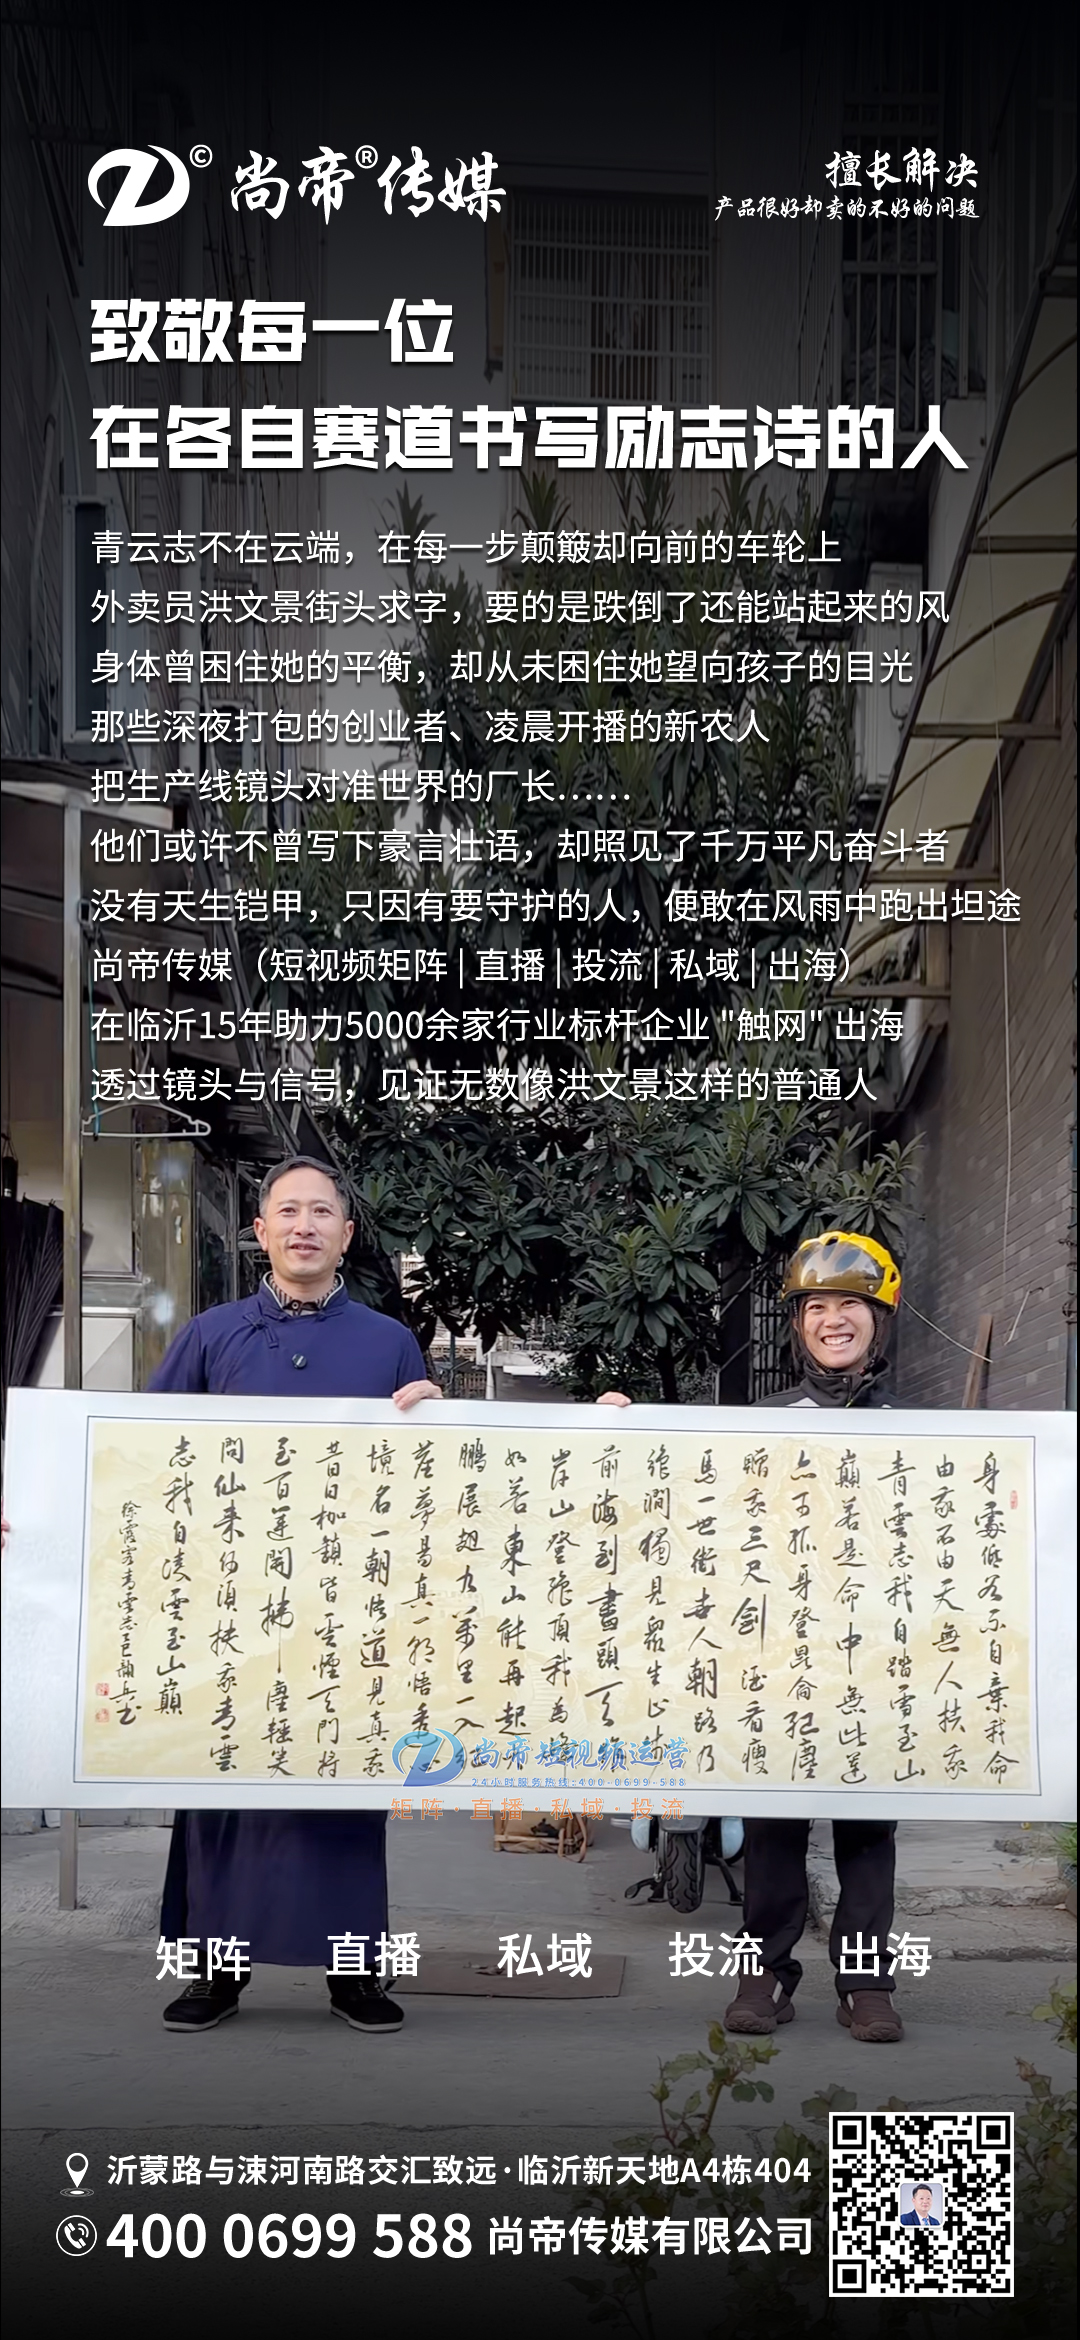 ©
尚帝®传媒
擅长解决
产品很好却卖的不好的问题
致敬每一位
在各自赛道书写励志诗的人
青云志不在云端，在每一步颠簸却向前的车轮上
外卖员洪文景街头求字，要的是跌倒了还能站起来的风
身体曾困住她的平衡，却从未困住她望向孩子的目光
那些深夜打包的创业者、凌晨开播的新农人
把生产线镜头对准世界的厂长……
他们或许不曾写下豪言壮语，却照见了千万平凡奋斗者
没有天生铠甲，只因有要守护的人，便敢在风雨中跑出坦途
尚帝传媒（短视频矩阵 | 直播 | 投流 | 私域 | 出海）
在临沂15年助力5000余家行业标杆企业 "触网" 出海
透过镜头与信号，见证无数像洪文景这样的普通人
身處低谷不自棄我命
由我不由天無人扶我
青雲志我自踏雪至山
巔若是命中無此運
亦可孤身登昆侖紅塵
贈我三尺劍酒看瘦
馬一世衝去人朝路乃
前海到書頭天作
岸山登絕頂我為峰
如若東山能再起大
鵬展翅九萬里一入
塵夢是真一朝悟
境名一朝悟道見真我
昔日枷鎖皆雲煙天門將
至百運開拂塵輕笑
問仙來何須扶我青雲
志我自凌雲至山巔
尚帝短视频运营
24小时服务热线:400-0699-588
矩阵·直播·私域·投流
矩阵 直播 私域 投流 出海
沂蒙路与涑河南路交汇致远·临沂新天地A4栋404
400 0699 588 尚帝传媒有限公司